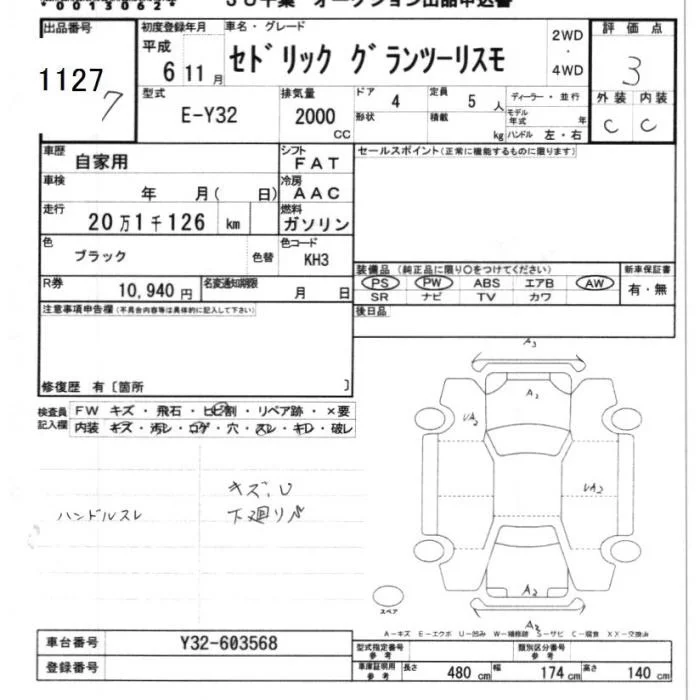 *00150624*
出品番号
初度登録年月
車名・グレード
評価点
平成
6 11月
セドリック グランツーリスモ
2WD
・
4WD
3
11277
型式
E-Y32
排気量
2000
CC
ドア
4
定員
5 人
形状
積載
kg
ディーラー・並行
モデル年式 年
ハンドル 左・右
外装 内装
C C
車歴
自家用
シフト
FAT
車検
年 月( 日)
冷房
AAC
走行
20万1千126 km
燃料
ガソリン
色
ブラック
色替
色コード
KH3
R券
10,940円
名変通知期限
月 日
セールスポイント(正常に機能するものに限ります)
装備品(純正品に限り○をつけてください)
新車保証書
PS PW ABS エアB AW
SR ナビ TV カワ
有・無
後日品
注意事項申告欄(不具合内容等は具体的に記入して下さい)
修復歴 有〔箇所 〕
検査員
記入欄
FW キズ・飛石・ヒビ割・リペア跡・×要
内装 キズ・汚レ・コゲ・穴・スレ・キレ・破レ
キズ、U
ハンドルスレ
A3
A1
VA2
VA2
A2
A2
スペア
A-キズ E-エクボ U-凹み W-補修跡 S-サビ C-腐食 XX-交換済
車台番号
Y32-603568
登録番号
型式指定番号
参考
類別区分番号
参考
車庫証明用
参考
長さ 480 cm
幅 174 cm
高さ 140 cm